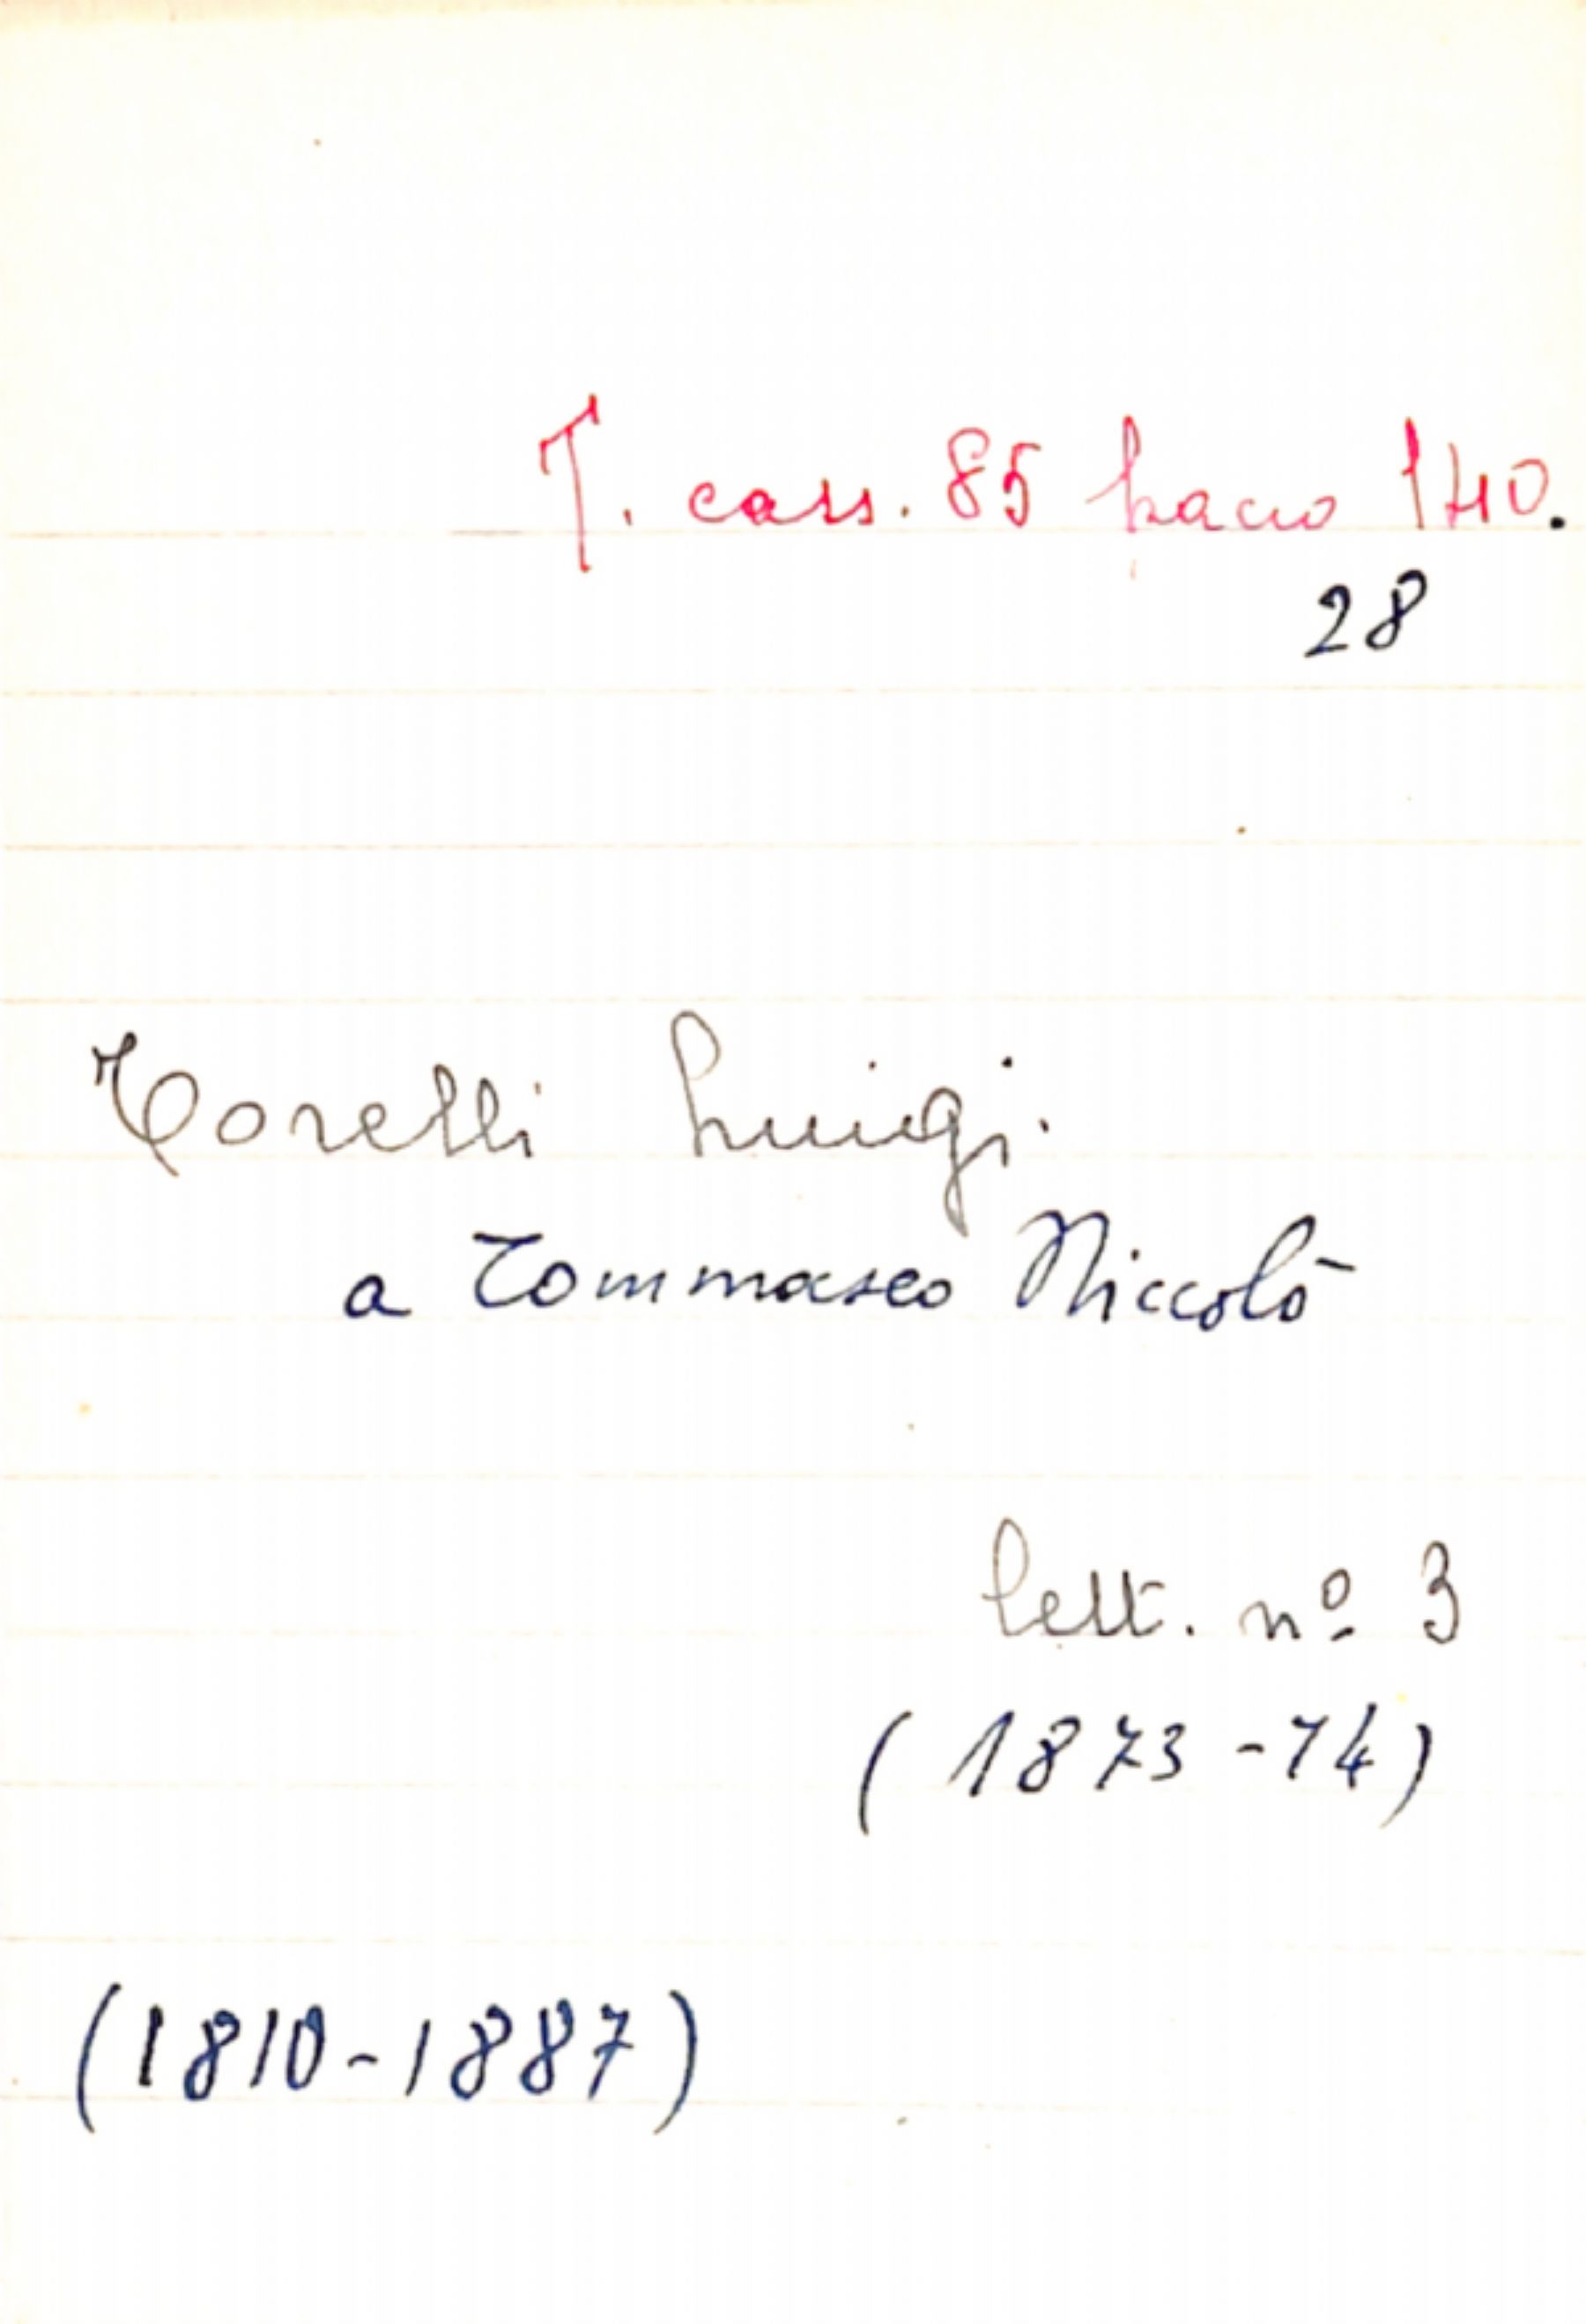 T. cass. 85 pacco 140.
28
Torelli Luigi.
a Tommaseo Niccolò
lett. nº 3
(1873-74)
(1810-1887)